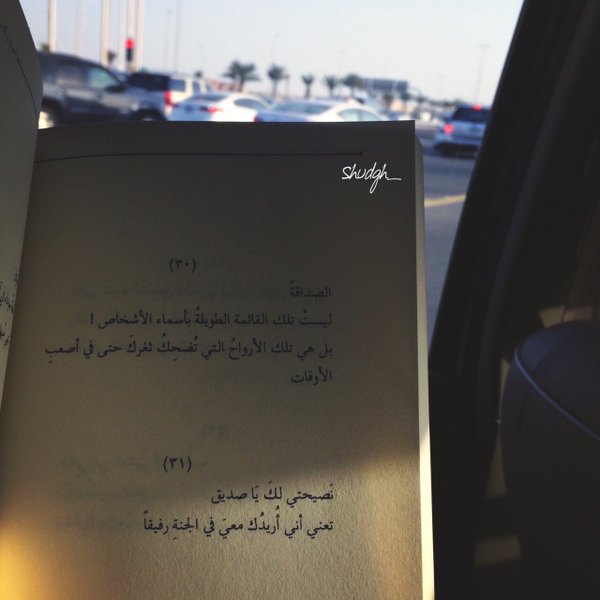 shudgh
(٣٠)
الصداقةُ
ليستْ تلك القائمة الطويلةُ بأسماء الأشخاص !
بل هي تلك الأرواحُ التي تُضحِكُ ثغركَ حتى في أصعبِ
الأوقات
(٣١)
نَصيحتي لكَ يَا صديق
تعني أني أُريدُك معيَ في الجنةِ رفيقاً